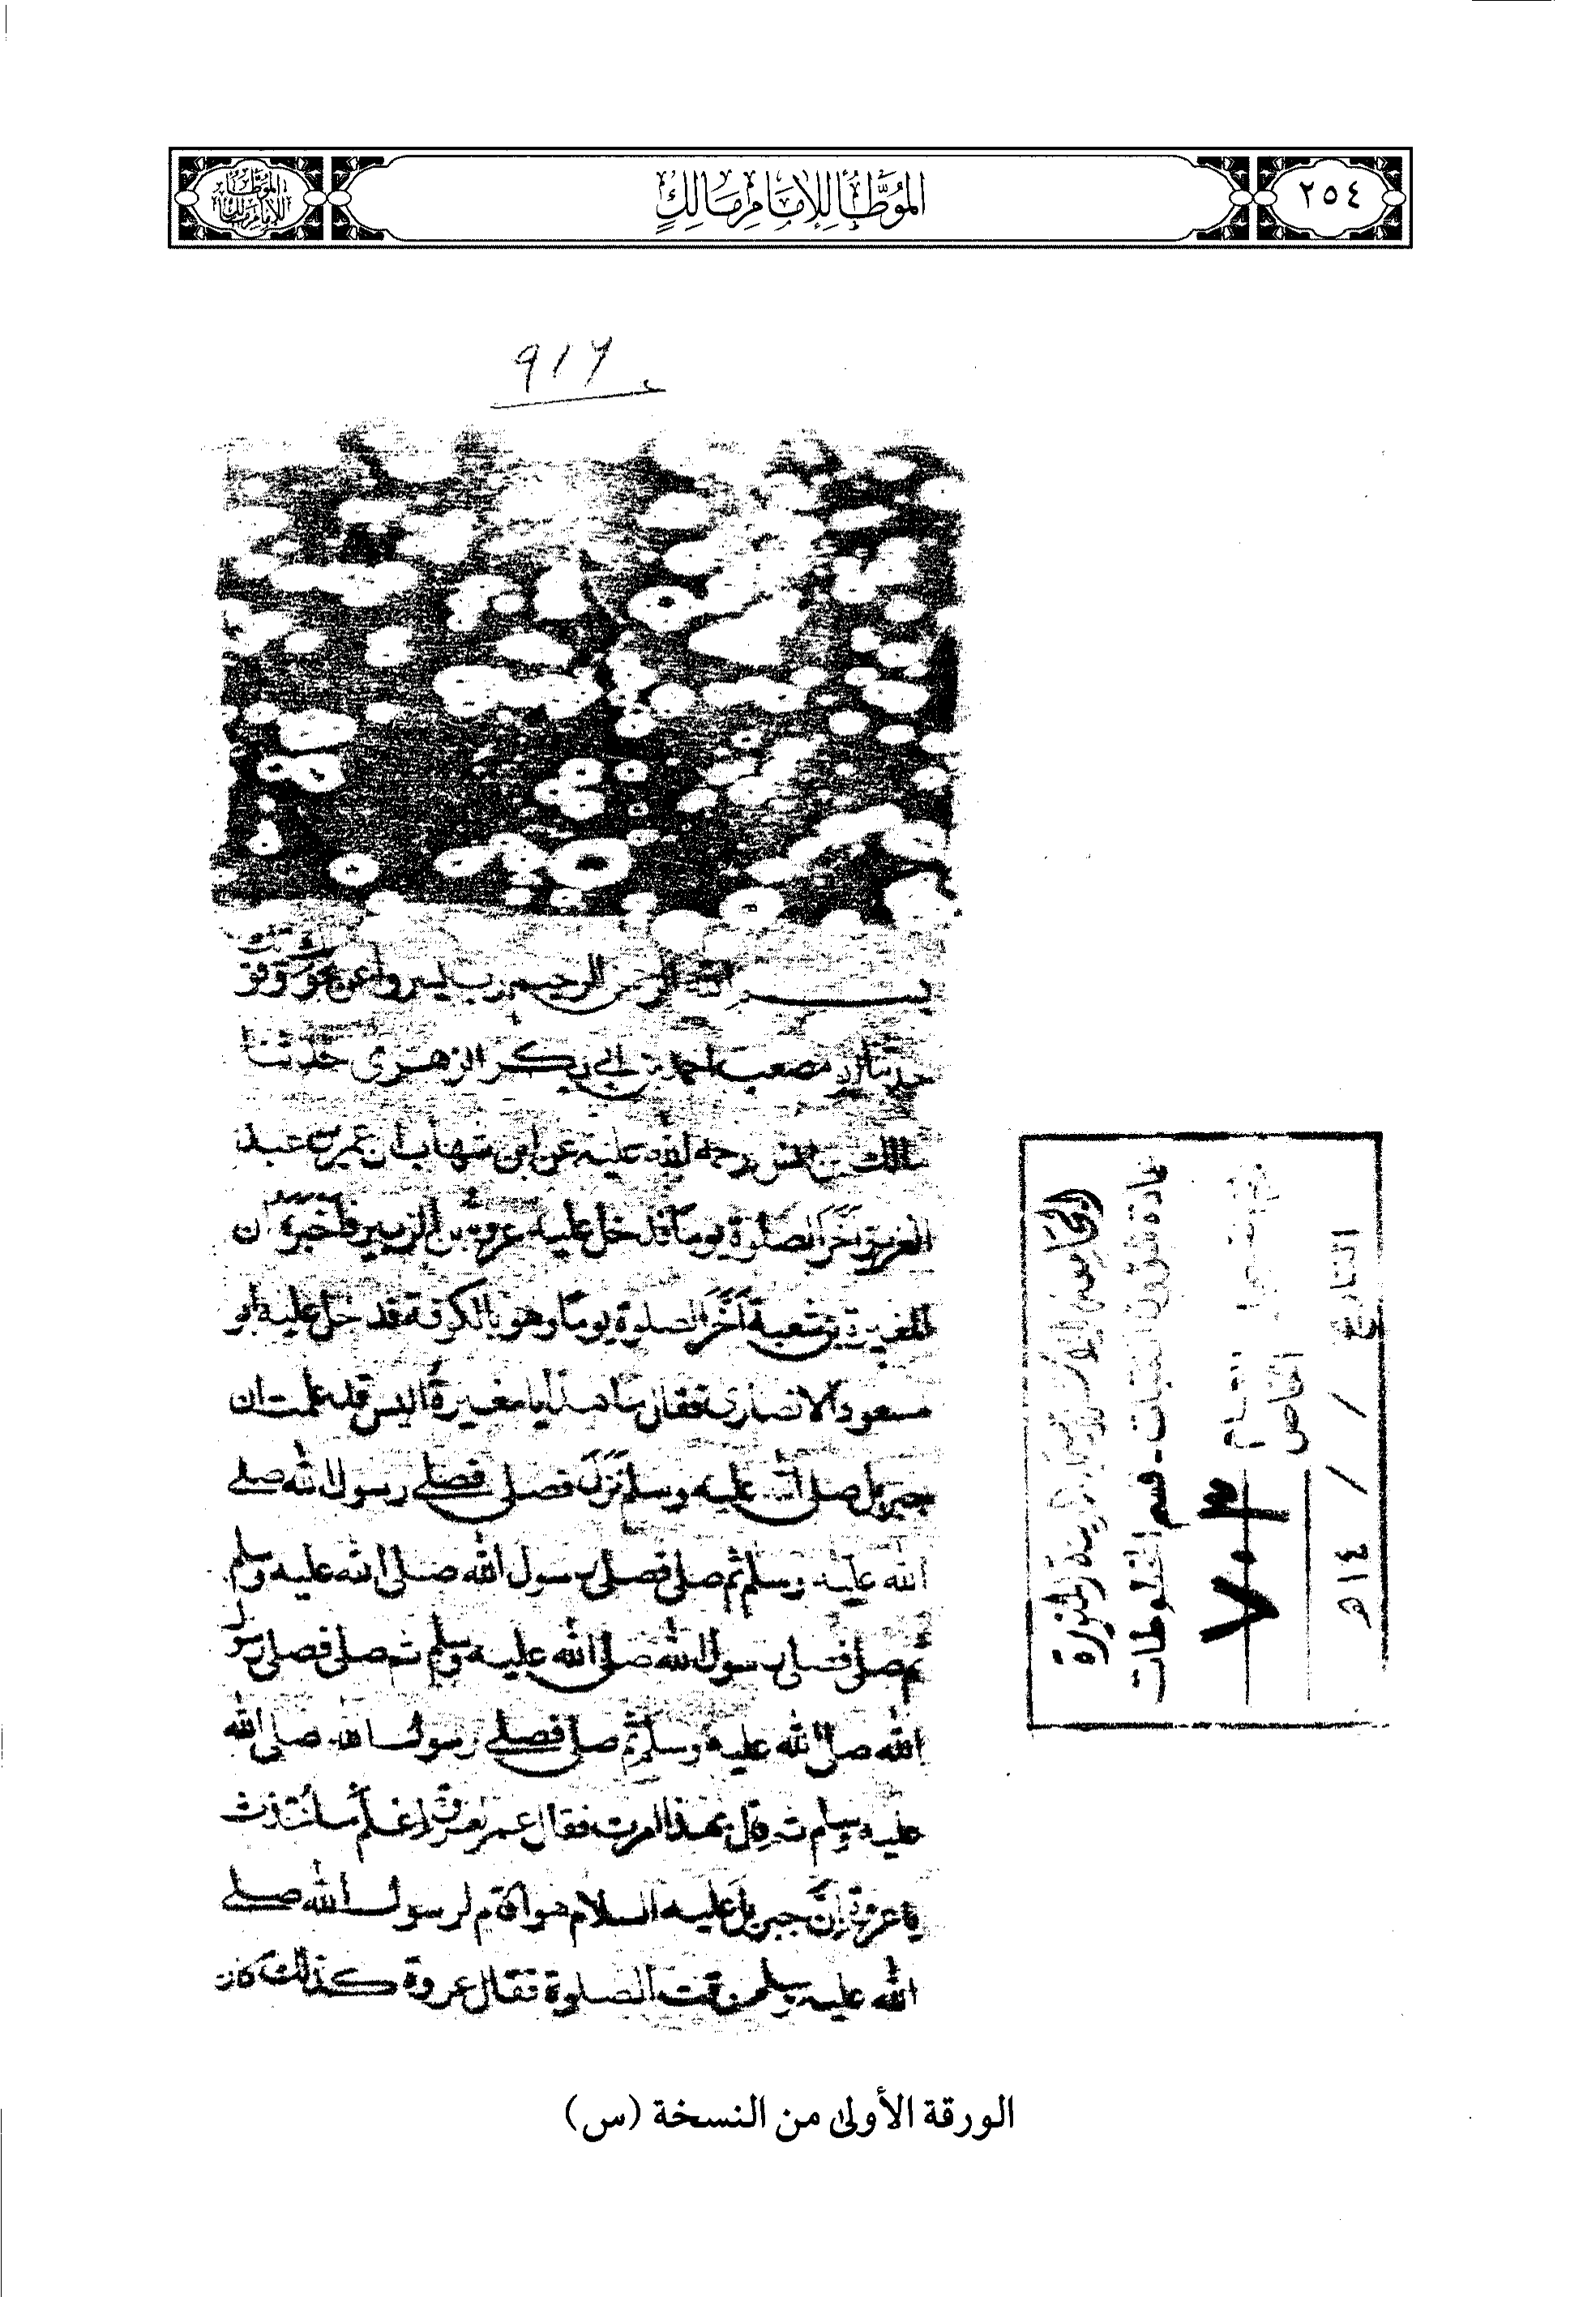 ٢٥٤
الموطأ للإمام مالك
الموطأ للإمام مالك
٩١٦
بسم الله الرحمن الرحيم رب يسر واعن بحولك وقوتك
حدثنا ابو مصعب احمد بن ابي بكر الزهري حدثنا
مالك بن انس رحمة الله عليه عن ابن شهاب ان عمر بن عبد
العزيز اخر الصلوة يوما فدخل عليه عروة بن الزبير فاخبره ان
المغيرة بن شعبة اخر الصلوة يوما وهو بالكوفة فدخل عليه ابو
مسعود الانصاري فقال ما هذا يا مغيرة اليس قد علمت ان
جبريل صلى الله عليه وسلم نزل فصلى فصلى رسول الله صلى
الله عليه وسلم ثم صلى فصلى رسول الله صلى الله عليه وسلم
ثم صلى فصلى رسول الله صلى الله عليه وسلم ثم صلى فصلى رسول
الله صلى الله عليه وسلم ثم صلى فصلى رسول الله صلى الله
عليه وسلم ثم قال بهذا امرت فقال عمر لعروة اعلم ما تحدث
يا عروة ان جبريل عليه السلام هو اقام لرسول الله صلى
الله عليه وسلم وقت الصلوة فقال عروة كذلك كان
المنورة
عمادة شؤون المكتبات - قسم المخطوطات
٧٠٣
الخاص
التاريخ / / ١٤هـ
الورقة الأولى من النسخة (س)